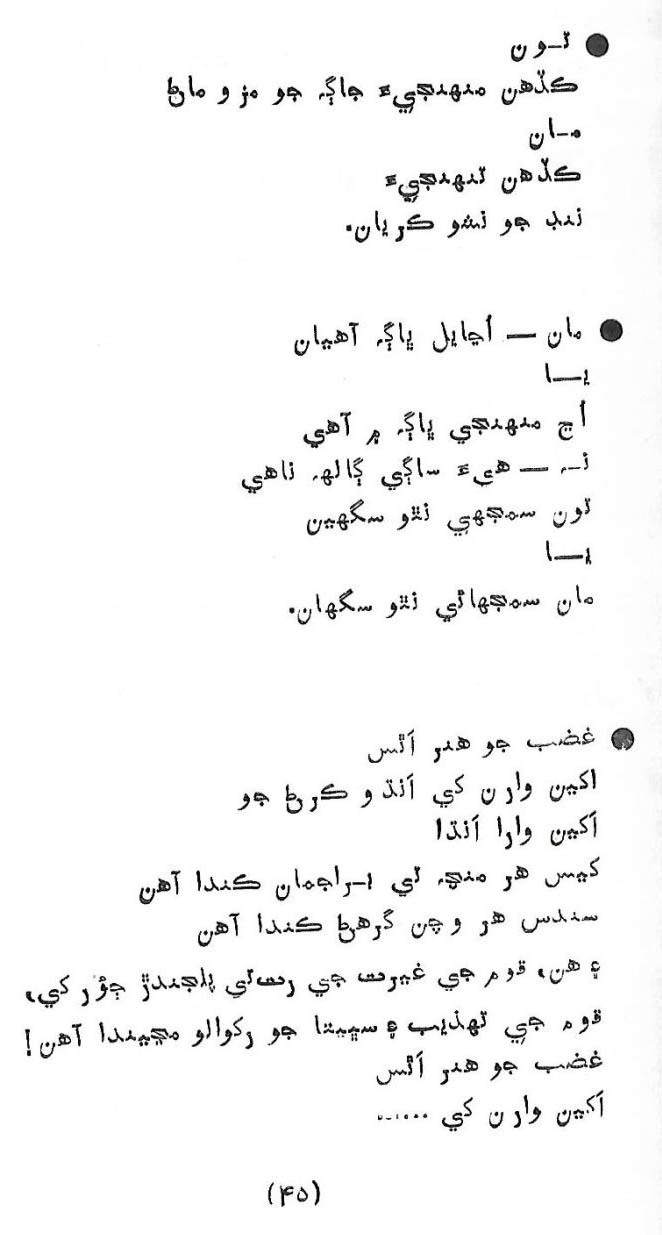 ● تـون
ڪڏهن منهنجيءَ جاڳہ جو مزو ماڻ
مـان
ڪڏهن تنهنجيءَ
ننڊ جو نشو ڪريان.
● مان — اُڃايل ڀاڳہ آهيان
يـــا
اُڃ منهنجي ڀاڳہ ۾ آهي
نـہ — هيءَ ساڳي ڳالهہ ناهي
تون سمجهي نٿو سگهين
يـــا
مان سمجهائي نٿو سگهان.
● غضب جو هنر اَٿس
اکين وارن کي اَنڌو ڪرڻ جو
اَکين وارا اَنڌا
کيس هر منچہ تي براجمان ڪندا آهن
سندس هر وچن گرهڻ ڪندا آهن
۽ هن، قوم جي غيرت جي رت تي پلجندڙ ڄؤر کي،
قوم جي تهذيب ۽ سڀيتا جو رکوالو مڃيندا آهن!
غضب جو هنر اَٿس
اَکين وارن کي ......
(۴۵)